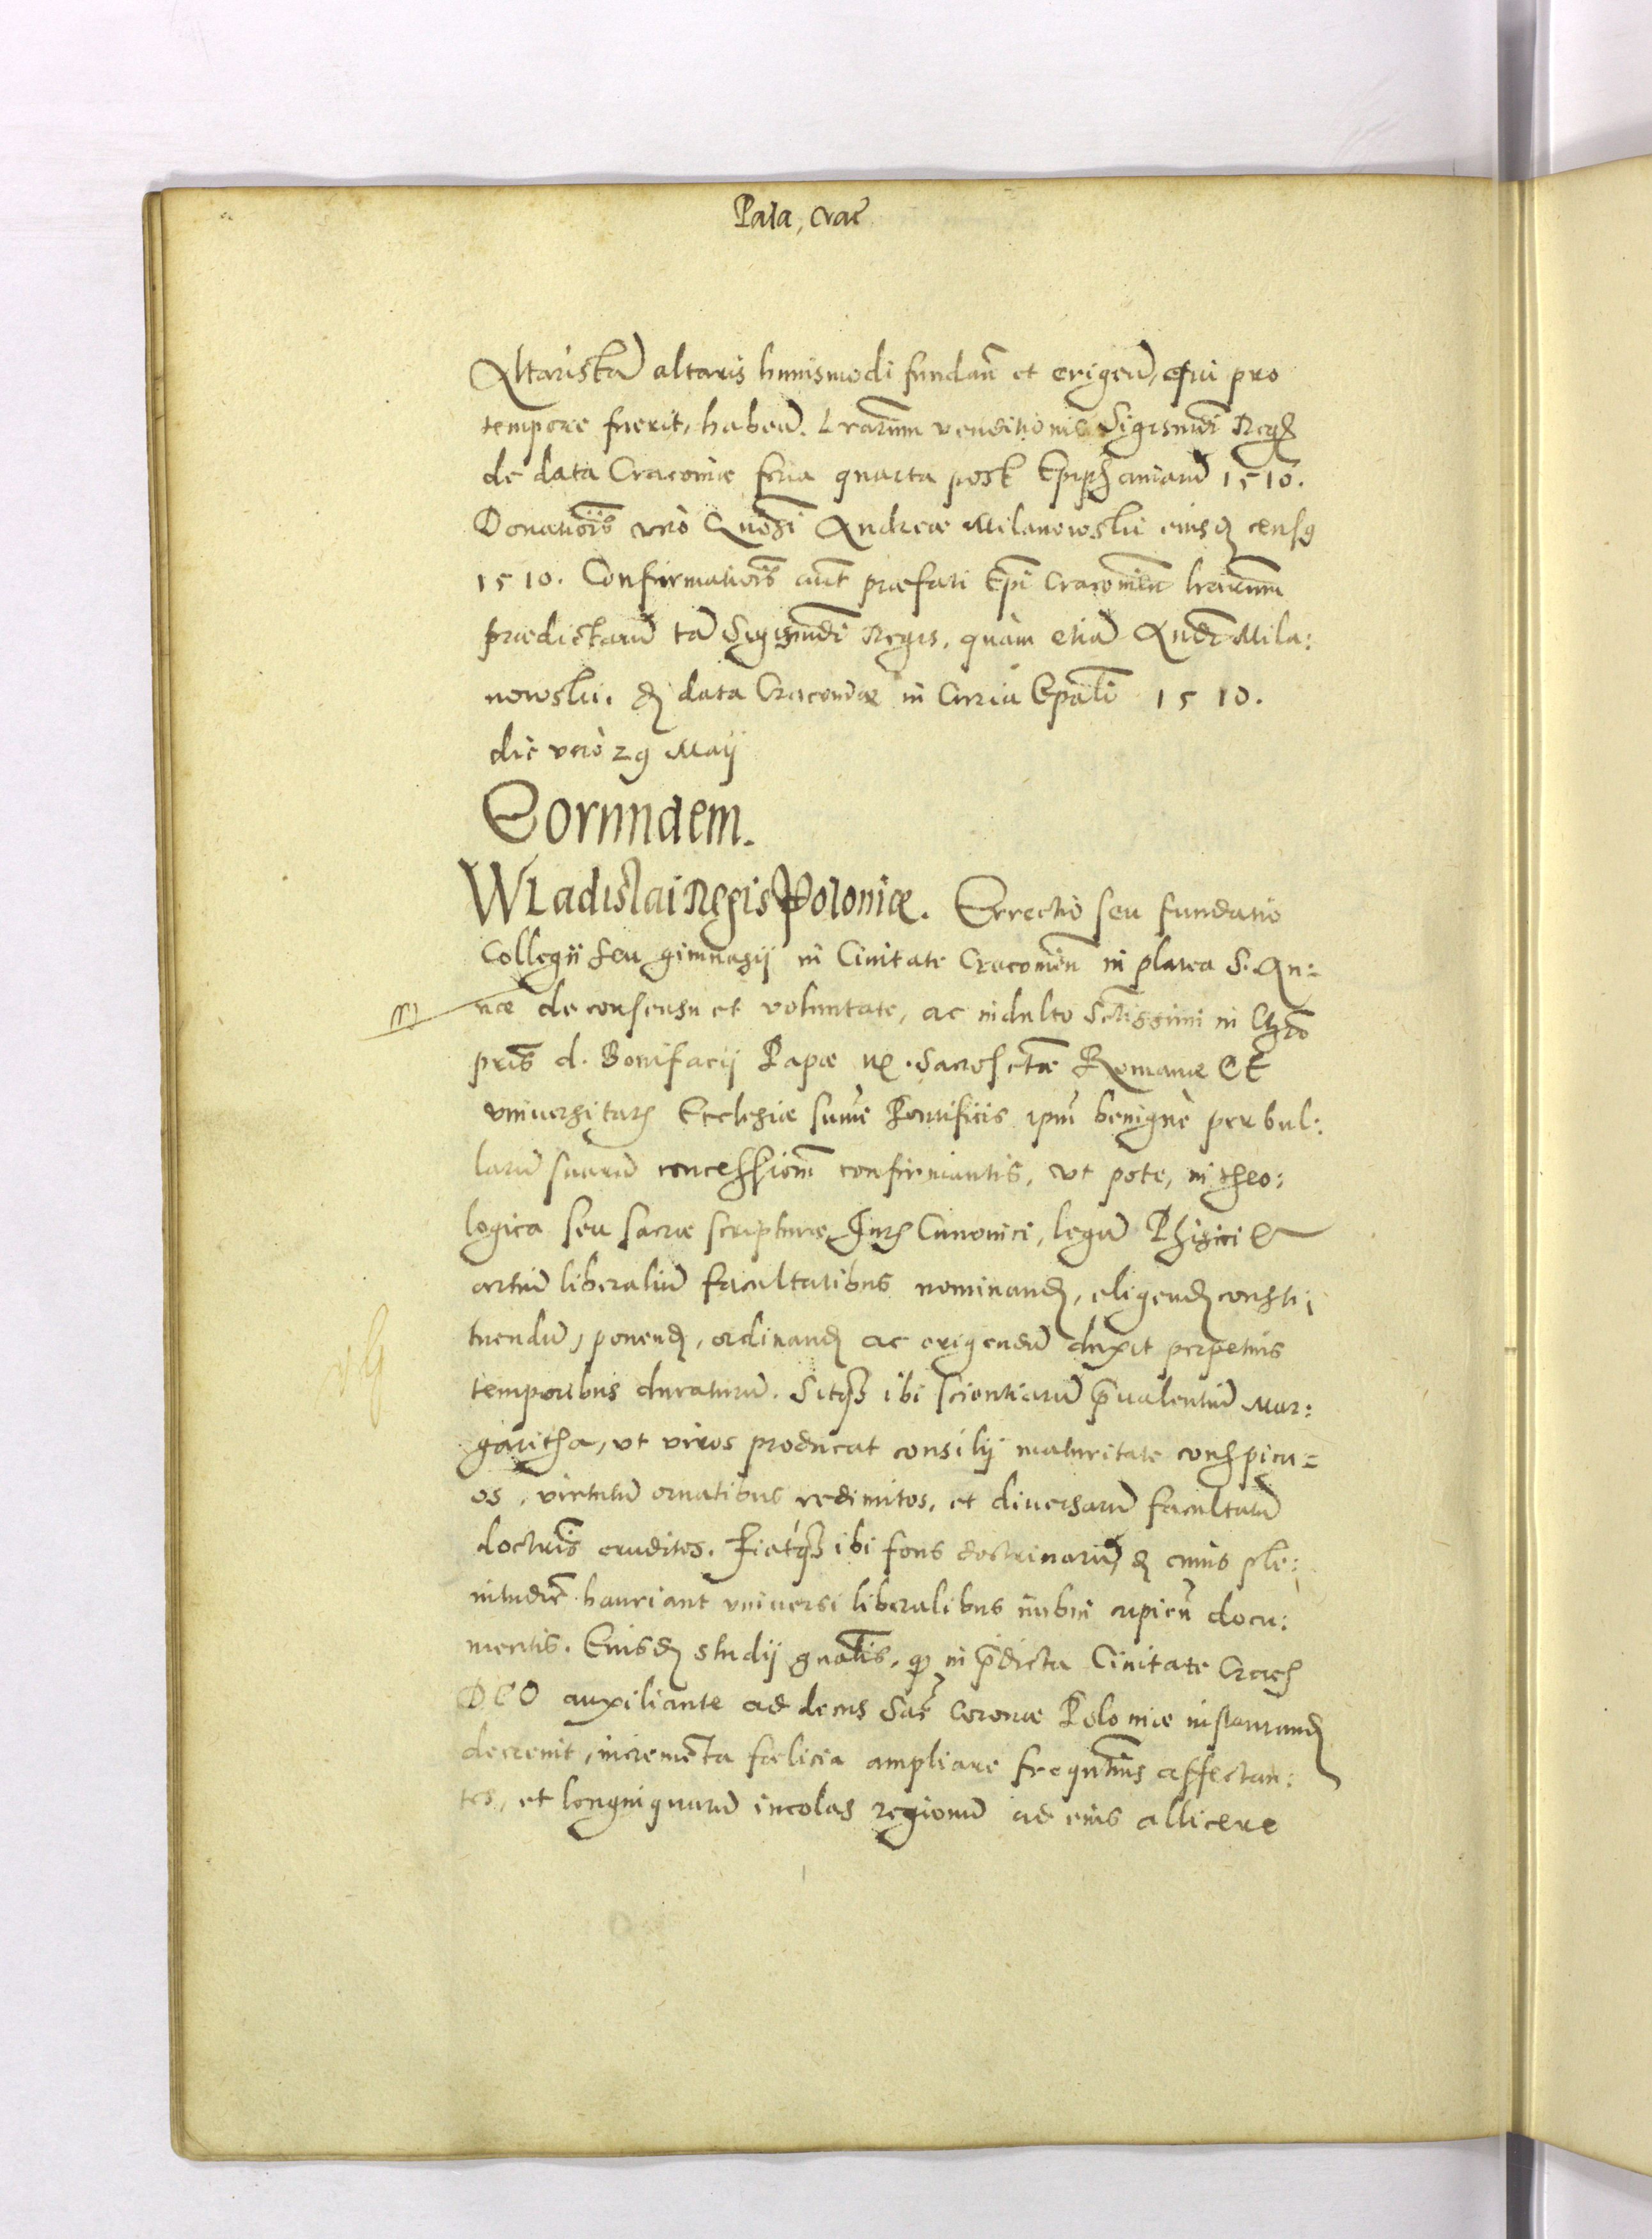 Pala, crac̄
Altaristā altaris huiusmodi fundan̄ et erigen̄, qui pro
tempore fuerit, haben̄. Lrarum venditionis Sigismūdi Reḡ
de data Cracoviæ feria quarta post Epiphaniarū 1510.
Donatiōis vero Andreæ Milanowskii eiusd censq
1510. Confirmatiōis aūt præfati Ep̄i Cracovien̄ lrarum
prædictarū tā Sigismūdi Regis, quàm etiā And̄r Mila:
nowskii. d data Cracoviæ in Curia Ep̄ali 1510.
die vero 29 Maij
Eorundem.
Wladislai Regis Poloniæ. Errectio seu fundatio
Collegii seu gimnasij in Ciuitate Cracouien̄ in platea S. An=
næ de consensu et voluntate, ac indulto Sctissimi in Chrō
pris̄ d. Bonifacij Papæ IX. Sacrosctæ Romanæ Et
vniuersitatis Ecclesiæ sum̄e Pontificis ip̄m benignè per bul:
larū suarū concessionm̄ confirmantis, vt pote, in theo:
logica seu sacræ scripturæ Juris Canonici, legū Phisici &
artiū liberaliū facultatibus nominand, eligend consti:
tuendū, ponend, ordinand ac erigendū duxit perpetuis
temporibus duraturū. Sitq3 ibi scientiarū p̄ualentiū Mar:
garitha, vt viros producat consilij maturitate conspicu=
os, virtutū ornatibus redimitos, et diuersarū facultatū
doctrīs eruditos. Fiatq3 ibi fons doctrinarū, d cuius ple:
nitudīe hauriant vniuersi liberalibus imbui cupien̄ docu:
mentis. Eiusd studij gnālis, qd in p̄dicta Ciuitate Crac
DEO auxiliante ad decus Sac̄ Coronæ Poloniæ instaurand
decreuit, incremēta fœlicia ampliare frequn̄tius affectan:
tes, et longinquarū incolas regionū ad eius allicere